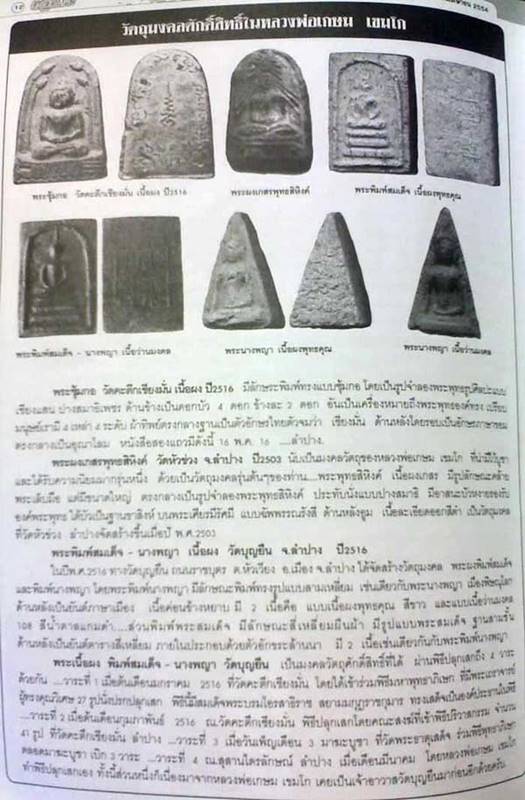 วัตถุมงคลศักดิ์สิทธิ์ในหลวงพ่อเกษม เขมโก
พระซุ้มกอ วัดคะตึกเชียงมั่น เนื้อผง ปี2516
พระผงเกสรพุทธสิหิงค์
พระพิมพ์สมเด็จ เนื้อผงพุทธคุณ
พระพิมพ์สมเด็จ - นางพญา เนื้อว่านมงคล
พระนางพญา เนื้อผงพุทธคุณ
พระนางพญา เนื้อว่านมงคล
พระซุ้มกอ วัดคะตึกเชียงมั่น เนื้อผง ปี2516 มีลักษระพิมพ์ทรงแบบซุ้มกอ โดยเป็นรูปจำลองพระพุทธรูปศิลปะแบบ
เชียงแสน ปางสมาธิเพชร ด้านข้างเป็นดอกบัว 4 ดอก ข้างละ 2 ดอก อันเป็นเครื่องหมายถึงพระพุทธองค์ทรง เปรียบ
มนุษย์เรามี 4 เหล่า 4 ระดับ ผ้าทิพย์ตรงกลางฐานเป็นตัวอักษรไทยตัวจมว่า เชียงมั่น ด้านหลังโดยรอบเป็นอักษรภาษาขอม
ตรงกลางเป็นอุณาโลม หนังสือสองแถวมีดังนี้ 16 พ.ค. 16 ....ลำปาง.
พระผงเกสรพุทธสิหิงค์ วัดหัวข่วง จ.ลำปาง ปี2503 นับเป็นมงคลวัตถุของหลวงพ่อเกษม เขมโก ที่น่ามีไว้บูชา
และได้รับความนิยมมากรุ่นหนึ่ง ด้วยเป็นวัตถุมงคลรุ่นต้นๆของท่าน....พระพุทธสิหิงค์ เนื้อผงเกสร มีรูปลักษณะคล้าย
พระเล็บมือ แต่มีขนาดใหญ่ ตรงกลางเป็นรูปจำลองพระพุทธสิหิงค์ ประทับนั่งแบบปางสมาธิ มีอาสนะบัวหงายรองรับ
องค์พระพุทธ ใต้บัวเป็นฐานขาสิงห์ บนพระเศียรมีรัศมี แบบฉัพพรรณรังสี ด้านหลังอูม เนื้อละเอียดออกสีดำ เป็นวัตถุมงคล
ที่วัดหัวข่วง ลำปางจัดสร้างขึ้นเมื่อปี พ.ศ.2503
พระพิมพ์สมเด็จ - นางพญา เนื้อผง วัดบุญยืน จ.ลำปาง ปี2516
ในปีพ.ศ.2516 ทางวัดบุญยืน ถนนราชบุตร ต.หัวเวียง อ.เมือง จ.ลำปาง ได้จัดสร้างวัตถุมงคล พระผงพิมพ์สมเด็จ
และพิมพ์นางพญา โดยพระพิมพ์นางพญา มีลักษณะพิมพ์ทรงรูปแบบสามเหลี่ยม เช่นเดียวกับพระนางพญา เมืองพิษณุโลก
ด้านหลังเป็นยันต์ภาษาเมือง เนื้อค่อนข้างหยาบ มี 2 เนื้อคือ แบบเนื้อผงพุทธคุณ สีขาว และแบบเนื้อว่านมงคล
108 สีน้ำตาลแกมดำ....ส่วนพิมพ์พระสมเด็จ มีลักษณะสี่เหลี่ยมผืนผ้า มีรูปแบบพระสมเด็จ ฐานสามชั้น
ด้านหลังเป็นยันต์ตารางสี่เหลี่ยม ภายในประกอบด้วยตัวอักขระล้านนา มี 2 เนื้อเช่นเดียวกันกับพระพิมพ์นางพญา
พระเนื้อผง พิมพ์สมเด็จ - นางพญา วัดบุญยืน เป็นมงคลวัตถุศักดิ์สิทธิ์ที่ได้ ผ่านพิธีปลุกเสกถึง 4 วาระ
ด้วยกัน ...วาระที่ 1 เมื่อต้นเดือนมกราคม 2516 ที่วัดคะตึกเชียงมั่น โดยได้เข้าร่วมพิธีมหาพุทธาภิเษก ที่มีพระอาจารย์
ผู้ทรงคุณวิเศษ 27 รูปนั่งปรกปลุกเสก พิธีนี้มีสมเด็จพระบรมโอรสาธิราช สยามมกุฎราชกุมาร ทรงเสด็จเป็นองค์ประธานในพิธี
...วาระที่ 2 เมื่อต้นเดือนกุมภาพันธ์ 2516 ณ.วัดคะตึกเชียงมั่น พิธีปลุกเสกโดยคณะสงฆ์ที่เข้าพิธีปริวาสกรรม จำนวน
41 รูป ที่วัดคะตึกเชียงมั่น ลำปาง ...วาระที่ 3 เมื่อวันเพ็ญเดือน 3 มาฆะบูชา ที่วัดพระธาตุเสด็จ ร่วมพิธีพุทธาภิเษก
ตลอดมาฆะบูชา เบิก 3 วาระ ....วาระที่ 4 ณ.สุสานไตรลักษณ์ ลำปาง เมื่อเดือนมีนาคม โดยหลวงพ่อเกษม เขมโก
ทำพิธีปลุกเสกเอง ทั้งนี้ส่วนหนึ่งก็เนื่องมาจากหลวงพ่อเกษม เขมโก เคยเป็นเจ้าอาวาสวัดบุญยืนมาก่อนอีกด้วยครับ.